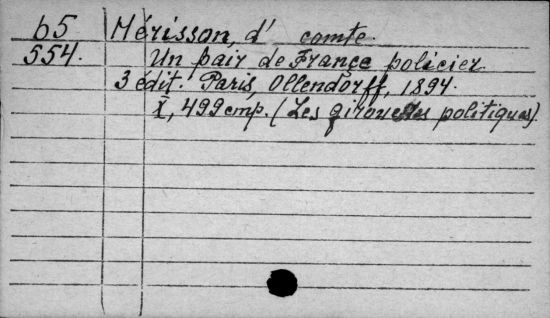 65 Mérisson, d' comte.
554. Un pair de France policier
3 édit. Paris, Ollendorff, 1894.
X, 499 cmp. (Les girouettes politiques).